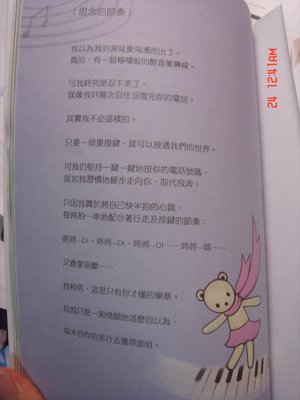 （思念的節奏）
我以為我的淚就要洶湧而出了。
真的，有一股檸檬般的酸直衝鼻樑。
可我終究是忍下來了，
就像我好幾次忍住沒撥完你的電話。
其實我不必這樣的。
只要一個重撥鍵，就可以接通我們的世界。
可我仍堅持一鍵一鍵地按你的電話號碼，
就如我習慣地緩步走向你，取代飛奔。
只因我貫於將自己快半拍的心跳，
每兩拍一串地配合著行走及按鍵的節奏：
咚咚--DI、咚咚--DI、咚咚--DI……咚咚--喀……
又倉皇掛斷……
我相信，這是只有你才懂的樂章。
但我只是一廂情願地這麼自以為，
從未自你的言行去獲得證明。
24 12:41AM